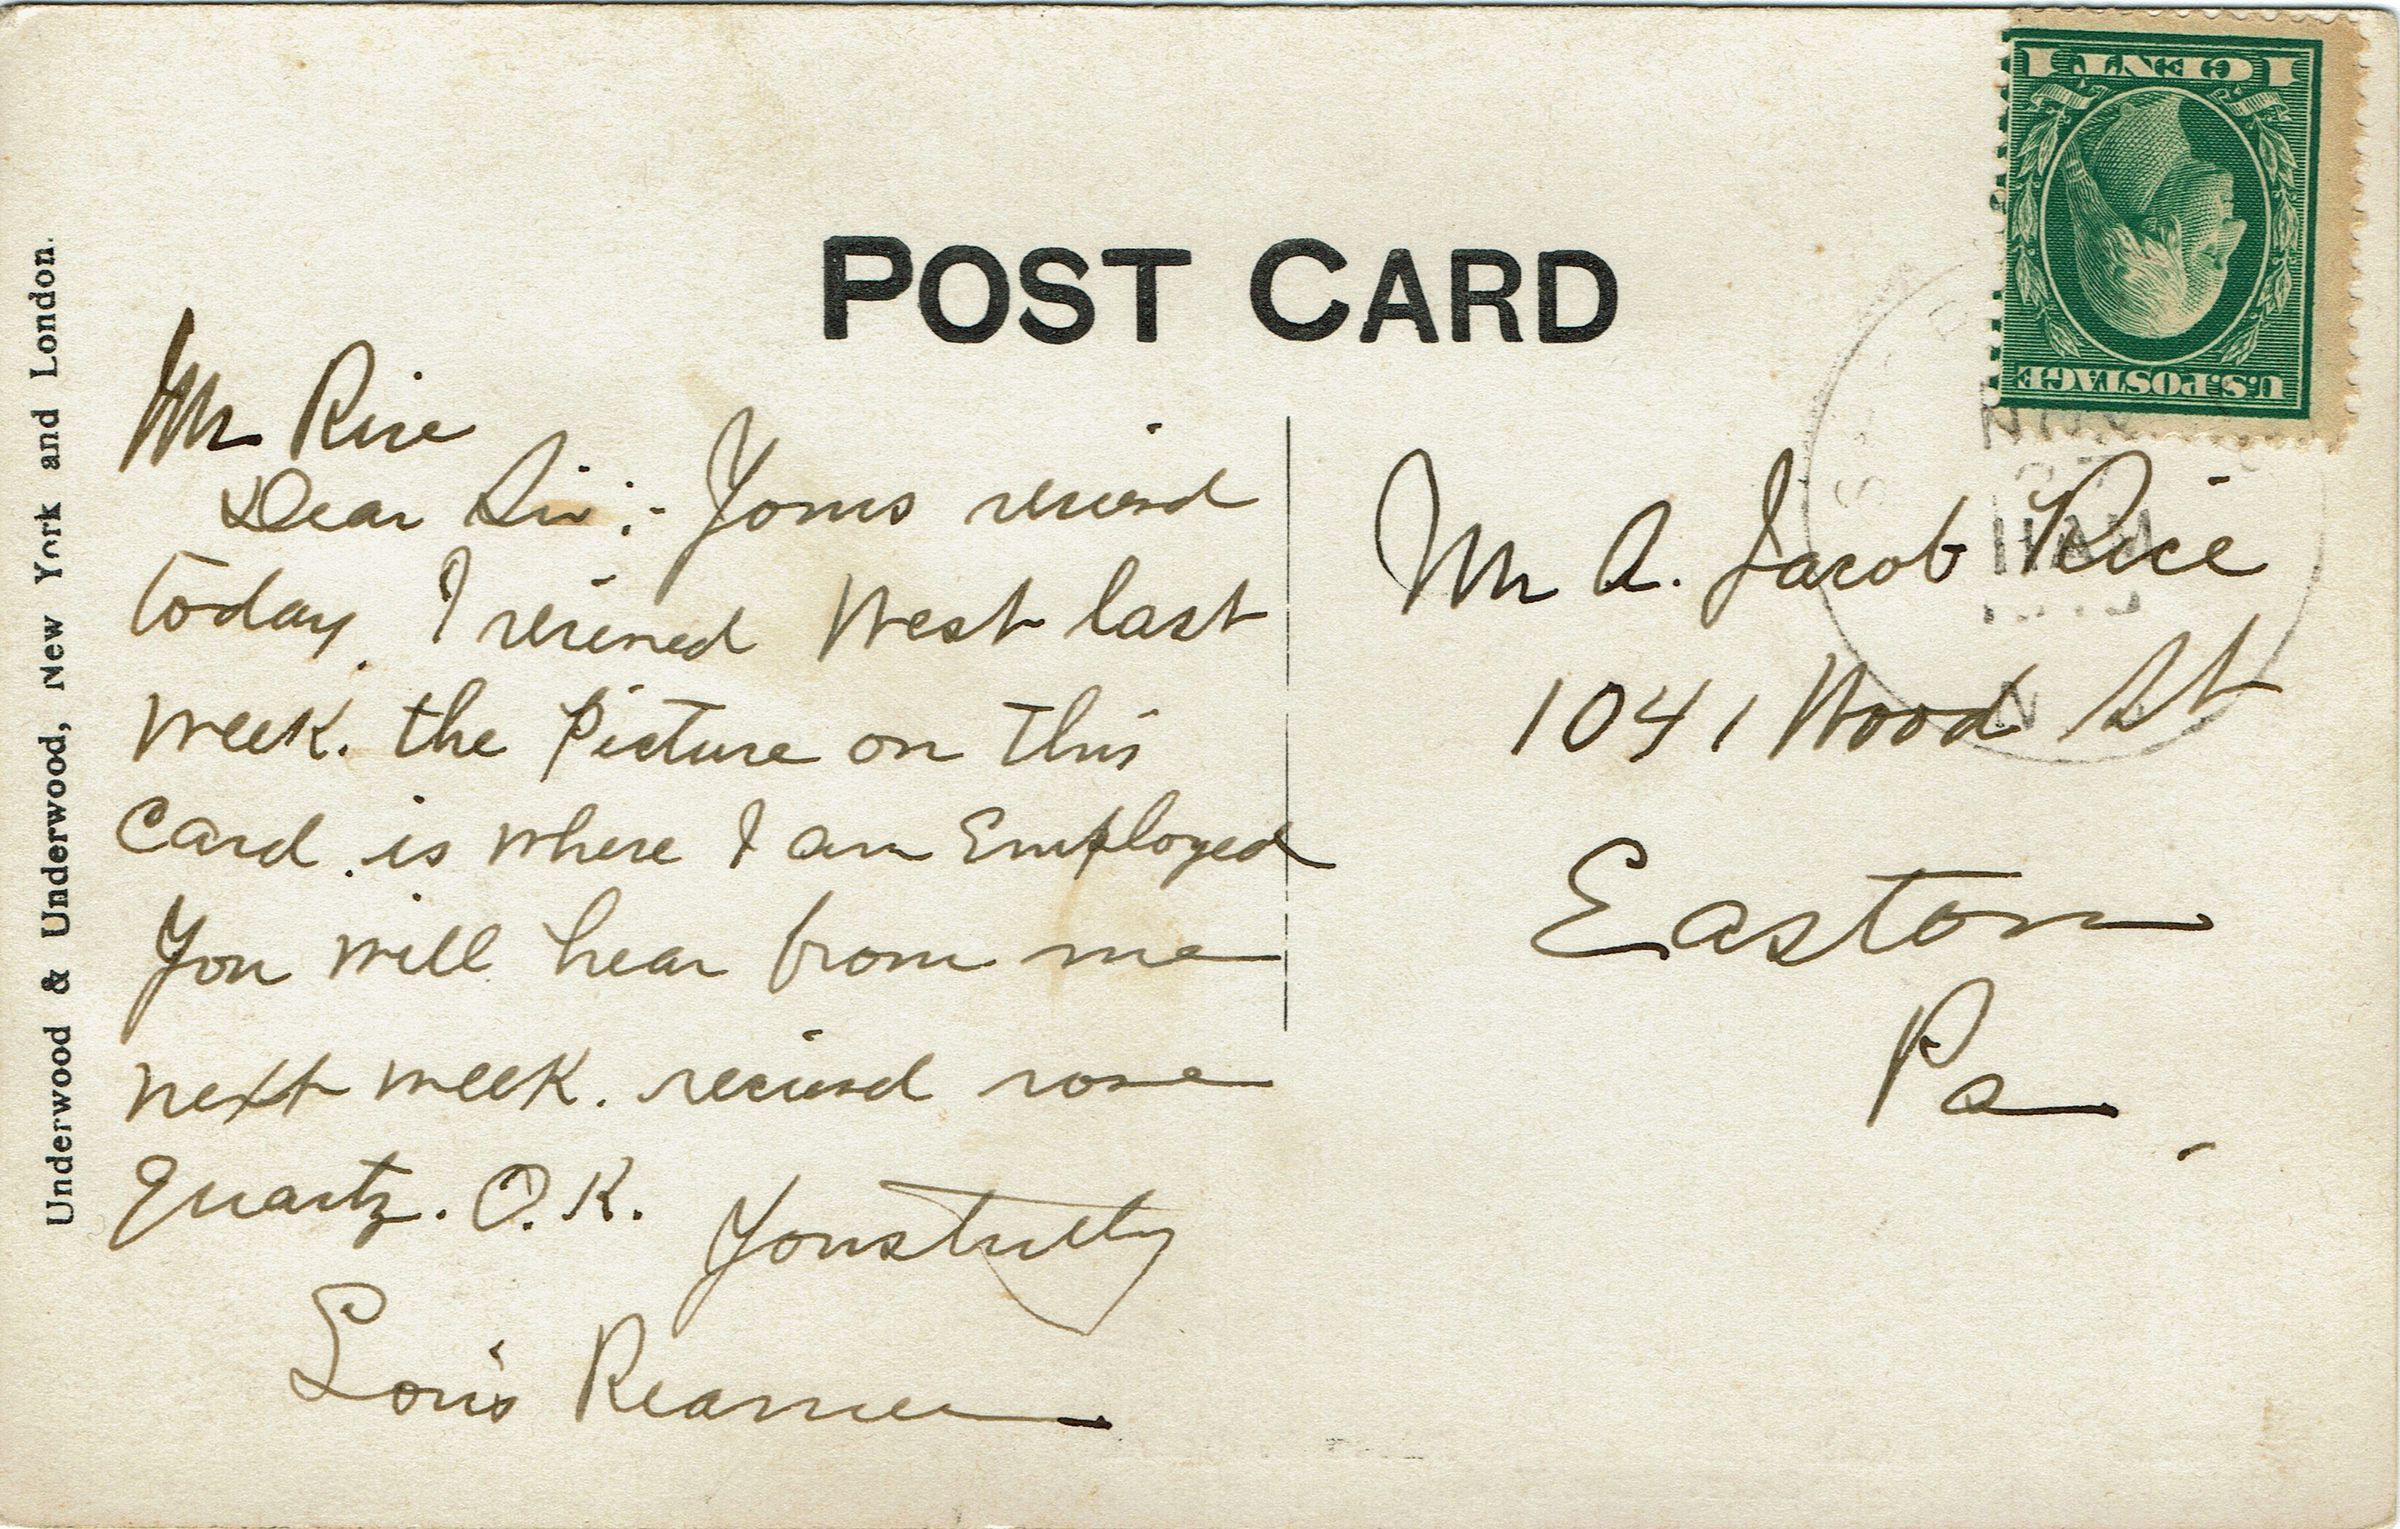 POST CARD
Underwood & Underwood, New York and London.
1 CENT 1
U.S. POSTAGE
Mr Rice
Dear Sir:- Yours recieved
today. I recieved West last
week. the Picture on this
Card is where I am Employed
You will hear from me
next week. recieved rose
quartz. O.K. Yours truly
Louis Reamer
Mr A. Jacob Rice
1041 Wood St
Easton
Pa.
11 AM